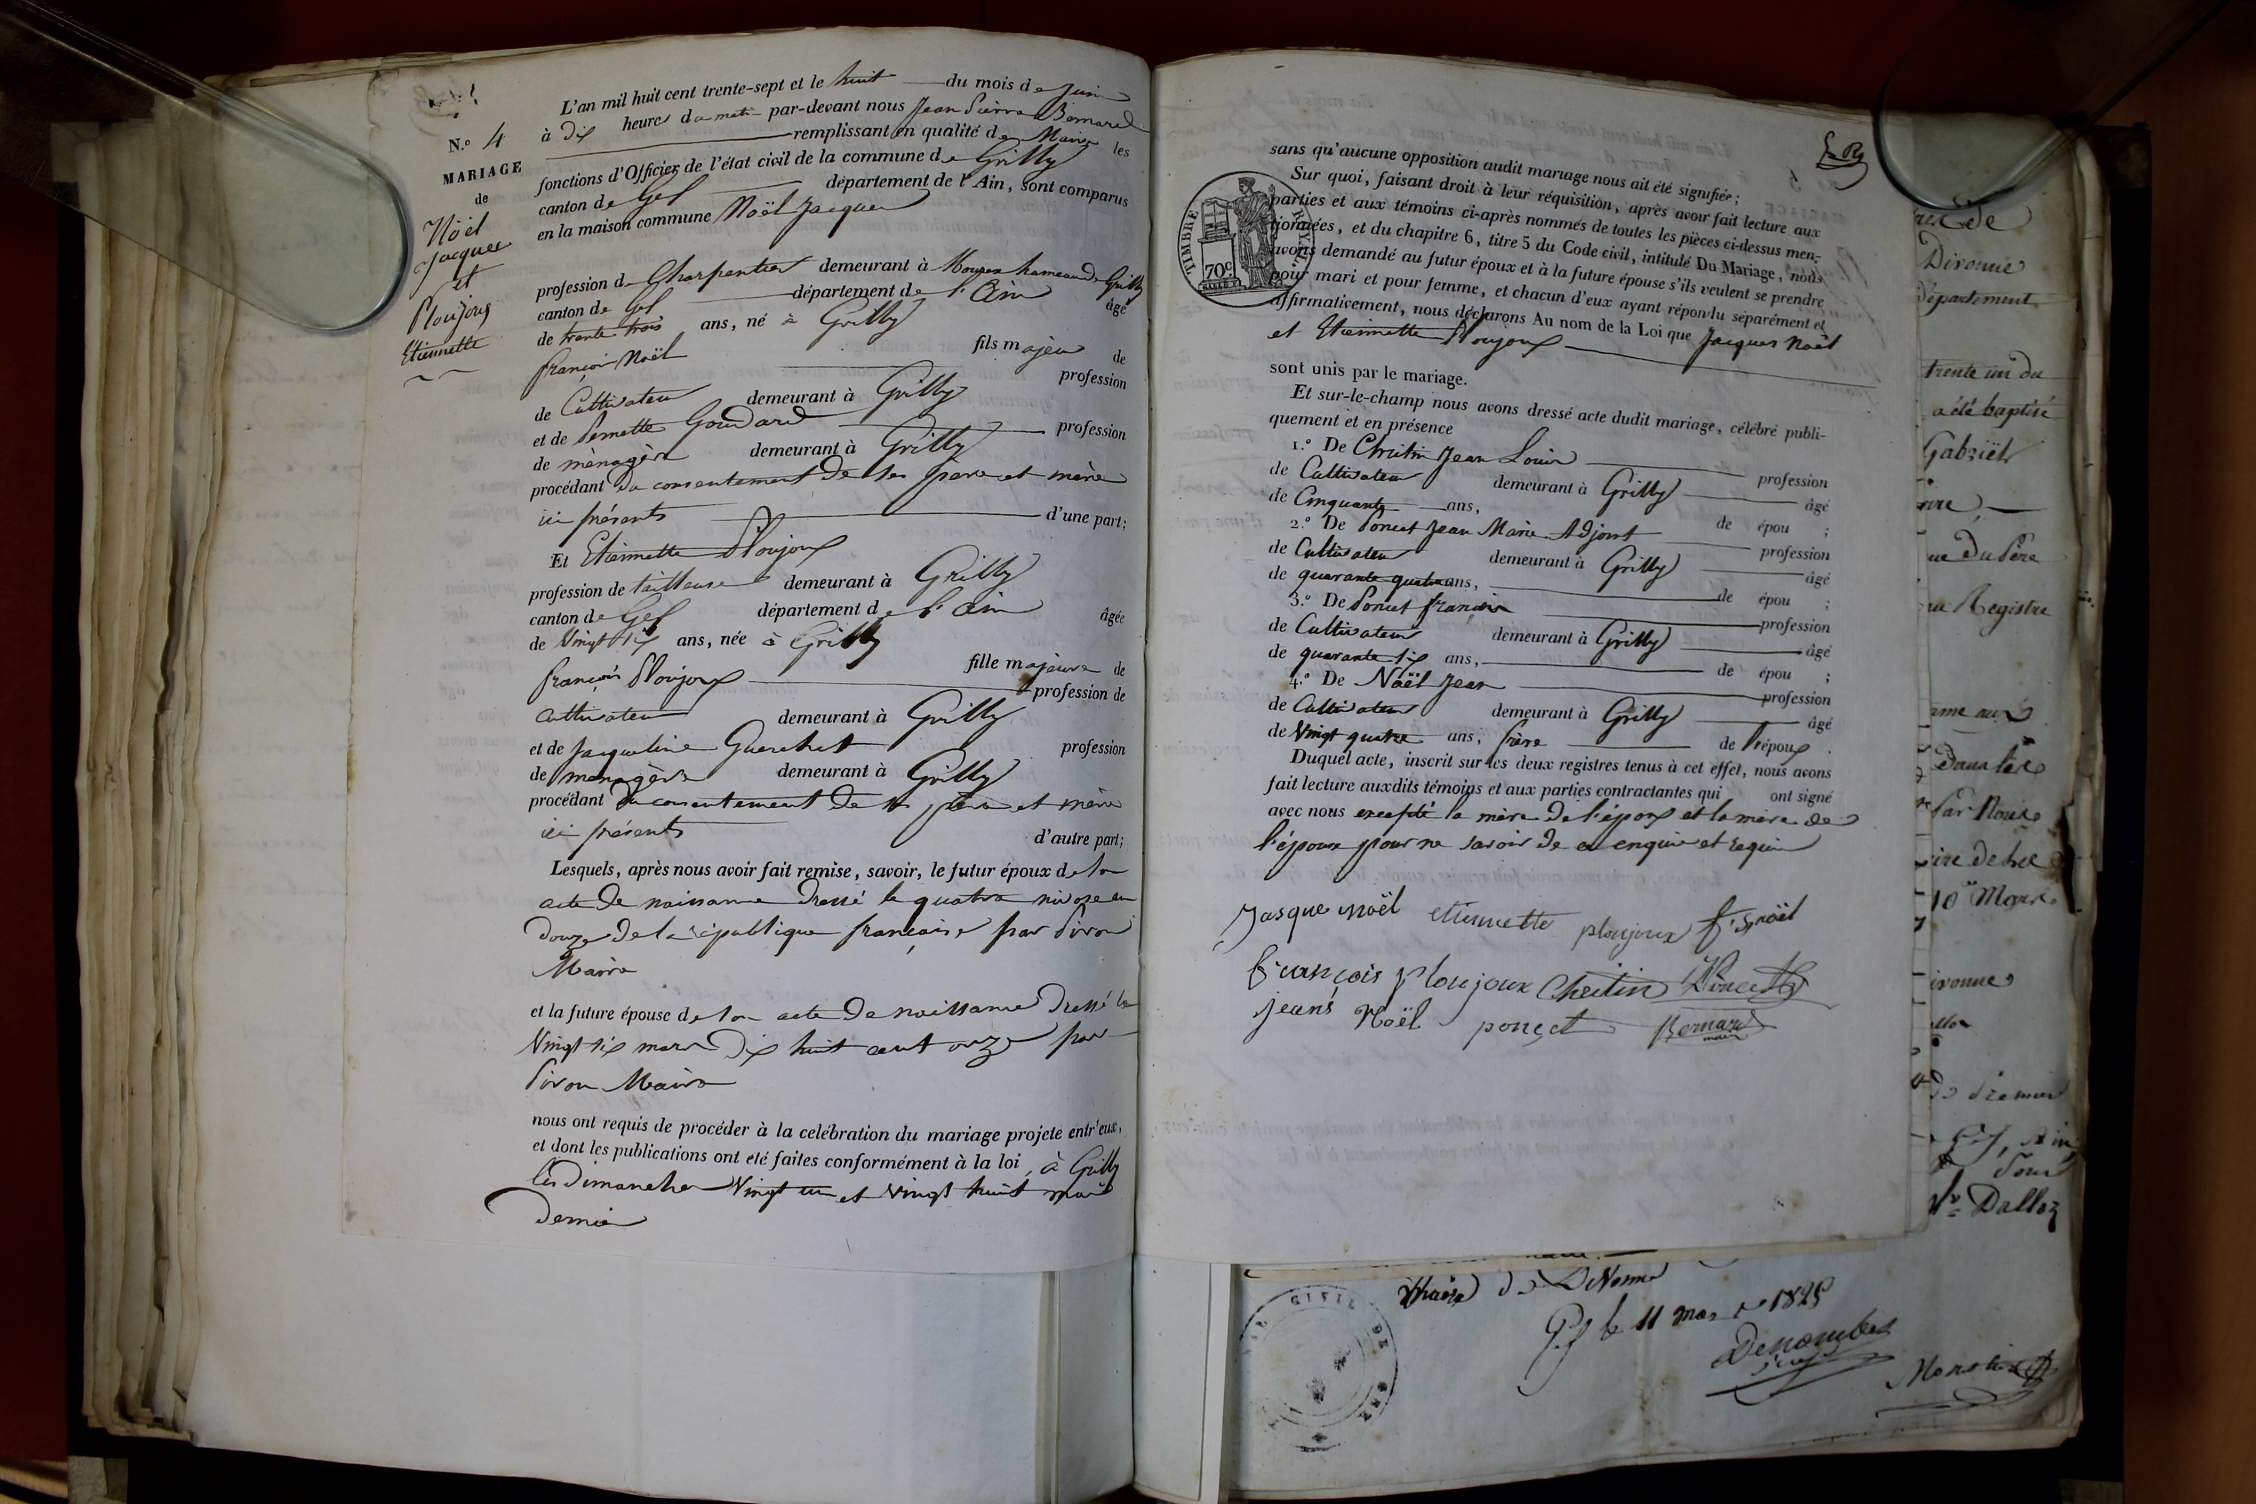 L'an mil huit cent trente-sept et le huit du mois de Juin
à dix heures du matin par-devant nous Jean Pierre Bernard
remplissant en qualité de Maire les
fonctions d'Officier de l'état civil de la commune de Grilly
canton de Gex département de l'Ain, sont comparus
en la maison commune Noël Jacques
N.º 4
MARIAGE
de
Noël
Jacques
et
Ploujoux
Etiennette
profession de Charpentier demeurant à Mourex hameau de Grilly
canton de Gex département de l'Ain âgé
de trente trois ans, né à Grilly
fils majeur de
françois Noël profession
de Cultivateur demeurant à Grilly
et de Pernette Goudard profession
de ménagère demeurant à Grilly
procédant du consentement de ses père et mère
ici présents d'une part;
Et Etiennette Ploujoux
profession de tailleuse demeurant à Grilly
canton de Gex département de l'Ain âgée
de Vingt six ans, née à Grilly
fille majeure de
françois Ploujoux profession de
cultivateur demeurant à Grilly
et de Jacqueline Guerchet profession
de menagère demeurant à Grilly
procédant du consentement de ses père et mère
ici présents d'autre part;
Lesquels, après nous avoir fait remise, savoir, le futur époux de son
acte de naissance dressé le quatre nivose an
douze de la république française par Piron
Maire
et la future épouse de son acte de naissance dressé le
Vingt six mars dix huit cent onze par
Piron Maire
nous ont requis de procéder à la celébration du mariage projeté entr'eux,
et dont les publications ont été faites conformément à la loi, à Grilly
les Dimanches Vingt un et vingt huit mai
dernier
sans qu'aucune opposition audit mariage nous ait été signifiée;
Sur quoi, faisant droit à leur réquisition, après avoir fait lecture aux
parties et aux témoins ci-après nommés de toutes les pièces ci-dessus men-
tionnées, et du chapitre 6, titre 5 du Code civil, intitulé Du Mariage, nous
avons demandé au futur époux et à la future épouse s'ils veulent se prendre
pour mari et pour femme, et chacun d'eux ayant répondu séparément et
affirmativement, nous déclarons Au nom de la Loi que Jacques Noël
et Etiennette Ploujoux
TIMBRE ROYAL
70c
sont unis par le mariage.
Et sur-le-champ nous avons dressé acte dudit mariage, célébré publi-
quement et en présence
1.º De Chritin Jean Louis profession
de Cultivateur demeurant à Grilly âgé
de Cinquante ans, de épou ;
2.º De Poncet Jean Marie Adjoint profession
de Cultivateur demeurant à Grilly âgé
de quarante quatre ans, de épou ;
3.º De Poncet françois profession
de Cultivateur demeurant à Grilly âgé
de quarante six ans, de épou ;
4.º De Noël Jean profession
de Cultivateur demeurant à Grilly âgé
de Vingt quatre ans, frère de l'époux .
Duquel acte, inscrit sur les deux registres tenus à cet effet, nous avons
fait lecture auxdits témoins et aux parties contractantes qui ont signé
avec nous excepté la mère de l'époux et la mère de
l'épouse pour ne savoir de ce enquis et requis
Jasque noël etiennette ploujoux f.s noël
François Ploujoux Chritin Poncet
jean Noël ponçet Bernard
maire
Divonne
département
trente un du
a été baptisé
Gabriël
du Père
Registre
10 Mars
Dalloz
CIVIL DE GEX
Mairie de Divonne
Gex le 11 mars 1825